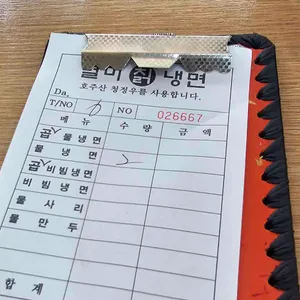 칡 냉면
호주산 청정우를 사용합니다.
Da.
T/NO NO 026667
메뉴 수량 금액
곱 물냉면
물냉면
곱 비빔냉면
비빔냉면
물사리
물만두
합계